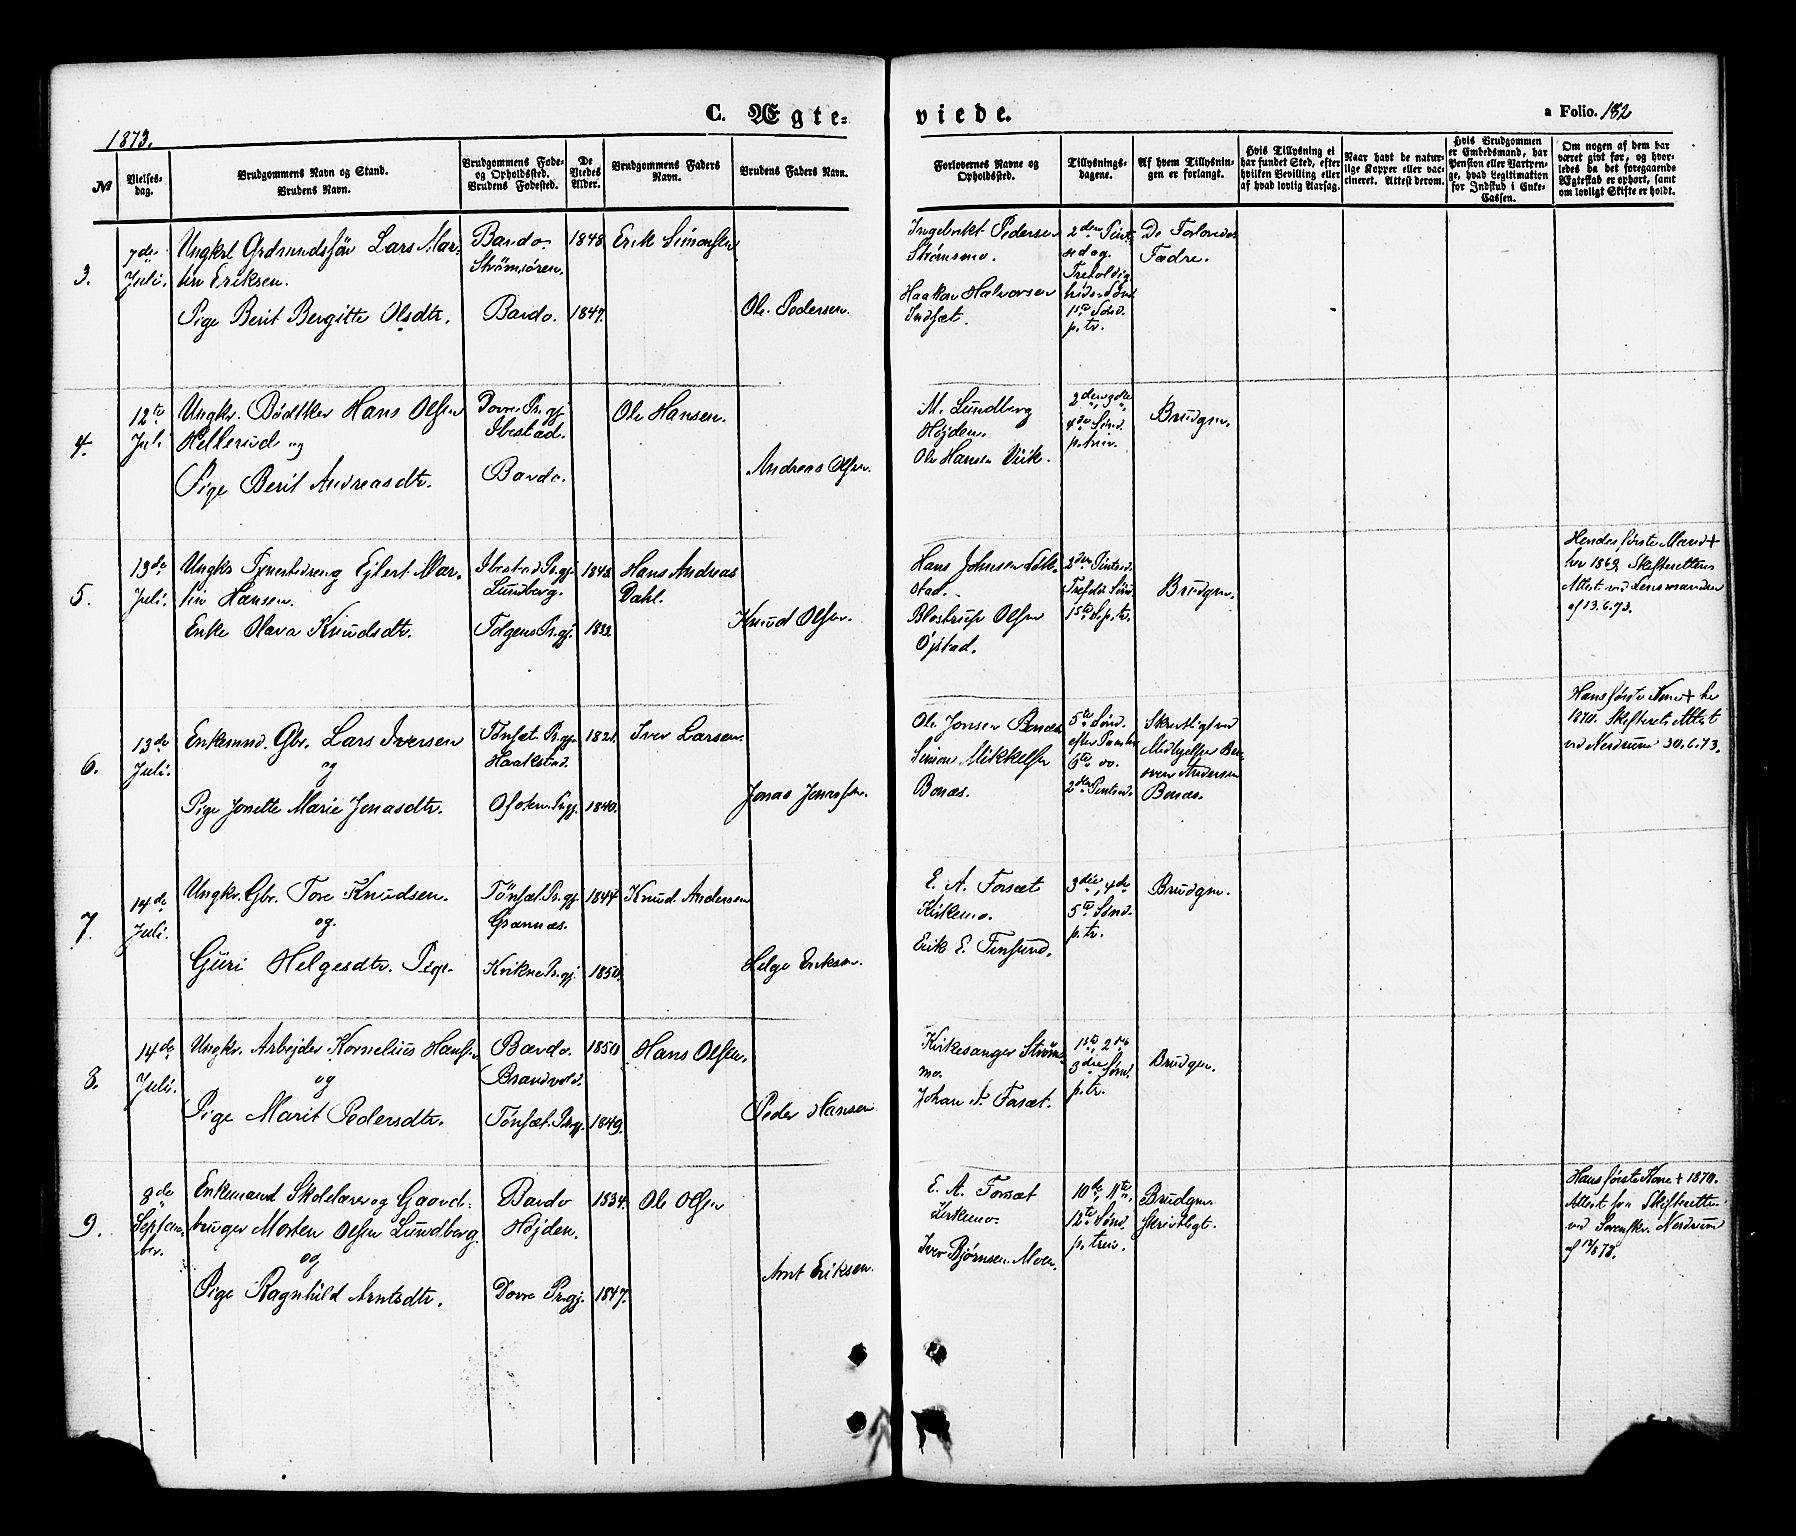 C. Ægte= viede.
a Folio. 182
1873.
No
Vielses-
dag.
Brudgommens Navn og Stand.
Brudens Navn.
Brudgommens Føde-
og Opholdssted.
Brudens Fødested.
De
Viedes
Alder.
Brudgommens Faders
Navn.
Brudens Faders Navn.
Forlovernes Navne og
Opholdssted.
Tillysnings-
dagene.
Af hvem Tillysnin-
gen er forlangt.
Hvis Tillysning ei
har fundet Sted, efter
hvilken Bevilling eller
af hvad lovlig Aarsag.
Naar havt de natur-
lige Kopper eller vac-
cineret. Attest derom.
Hvis Brudgommen
er Embedsmand, har
Pension eller Vartpen-
ge, hvad Legitimation
for Indskud i Enke-
Cassen.
Om nogen af dem har
været gift før, og hvor-
ledes da det foregaaende
Ægteskab er ophørt, samt
om lovligt Skifte er holdt.
3.
7de
Juli.
Ungkrl Grdmandssøn Lars Mar-
tin Eriksen.
Pige Berit Bergitte Olsdtr.
Bardo
Strømsören.
Bardo.
1848
1847.
Erik Simonsen
Ole Pedersen.
Ingebrikt Pedersen
Strömsmo.
Haakon Halvorsen
Indsæt.
2den Pint-
sed og
Trefoldig
heds Sönd.
1ste Sönd.
p. tr.
De Forlovedes
Fædre.
4.
12te
Juli
Ungkr. Bødtker Hans Olsen
Hellerud og
Pige Berit Andreasdtr.
Dovre Pr.gj.
Ibestad.
Bardo.
Ole Hansen.
Andreas Olsen.
M. Lundberg
Højden.
Ole Hansen Viik.
4de Sönd.
p. trin.
Brudgm.
5.
13de
Juli.
Ungkr Tjenestedreng Ejlert Mar-
tin Hansen.
Enke Olava Knudsdtr.
Ibestad Pr.gj.
Lundberg.
Tolgens Pr.gj.
1848.
1833.
Hans Andreas
Dahl.
Knud Olsen.
Hans Johnsen
stad.
Olsen
Øjstad.
2den Pintsed.
Trefolds Sönd
1ste S. p. tr.
Brudgm.
Hendes første Mand +
her 1869 Skifterettens
Attest ved Lensmanden
af 13.6.73.
6.
13de
Juli.
Enkemnd. Gbr. Lars Iversen
og
Pige Jonette Marie Jonasdtr.
Tönset Pr.gj.
Haakstad.
Ofoten Pr.gj.
1821.
1840.
Iver Larsen.
Jonas Jonassen.
Ole Jonsen Bonæs
Simon Mikkelsen
Bonæs.
5te Sönd.
efter Paaske
6te do.
2den Pintsed.
Skriftligt ved
Medhjelper
Andersen
Bonæs.
Hans første Kone + her
1870. Skifterets Attest
ved Nerdrum 30.6.73.
7.
14de
Juli.
Ungkr. Gbr. Tore Knudsen.
og
Guri Helgesdtr. Pige.
Tönset Pr.gj.
Grannæs.
Kvikne Pr.gj.
1844
1850.
Knud Andersen
Helge Eriksen.
E. A. Forsæt
Kirkemo.
Erik E. Finsund.
3die, 4de
5te Sönd.
p. tr.
Brudgm.
8.
14de
Juli.
Ungkr. Arbejder Kornelius Hansen
og
Pige Marit Pedersdtr.
Bardo.
Brandvold.
Tönset Pr.gj.
1850
1849.
Hans Olsen.
Peder Hansen
Kirkesanger Ströms-
mo.
Johan A. Forsæt.
1ste, 2den
3die Sönd.
p. tr.
Brudgm.
9.
8de
Septem-
ber.
Enkemand Skolelærer og Gaard-
bruger Morten Olsen Lundberg.
og
Pige Ragnhild Arntsdtr.
Bardo
Højden.
Dovre Pr.gj.
1834.
1847.
Ole Olsen
Arnt Eriksen.
E. A. Forsæt
Kirkemo.
Iver Bjørnsen Moen.
10de, 11te,
12te Sönd.
p. trin.
Brudgm.
skriftligt.
Hans første Kone + 1870.
Attest fra Skifteretten
ved Sorenskr. Nerdrum